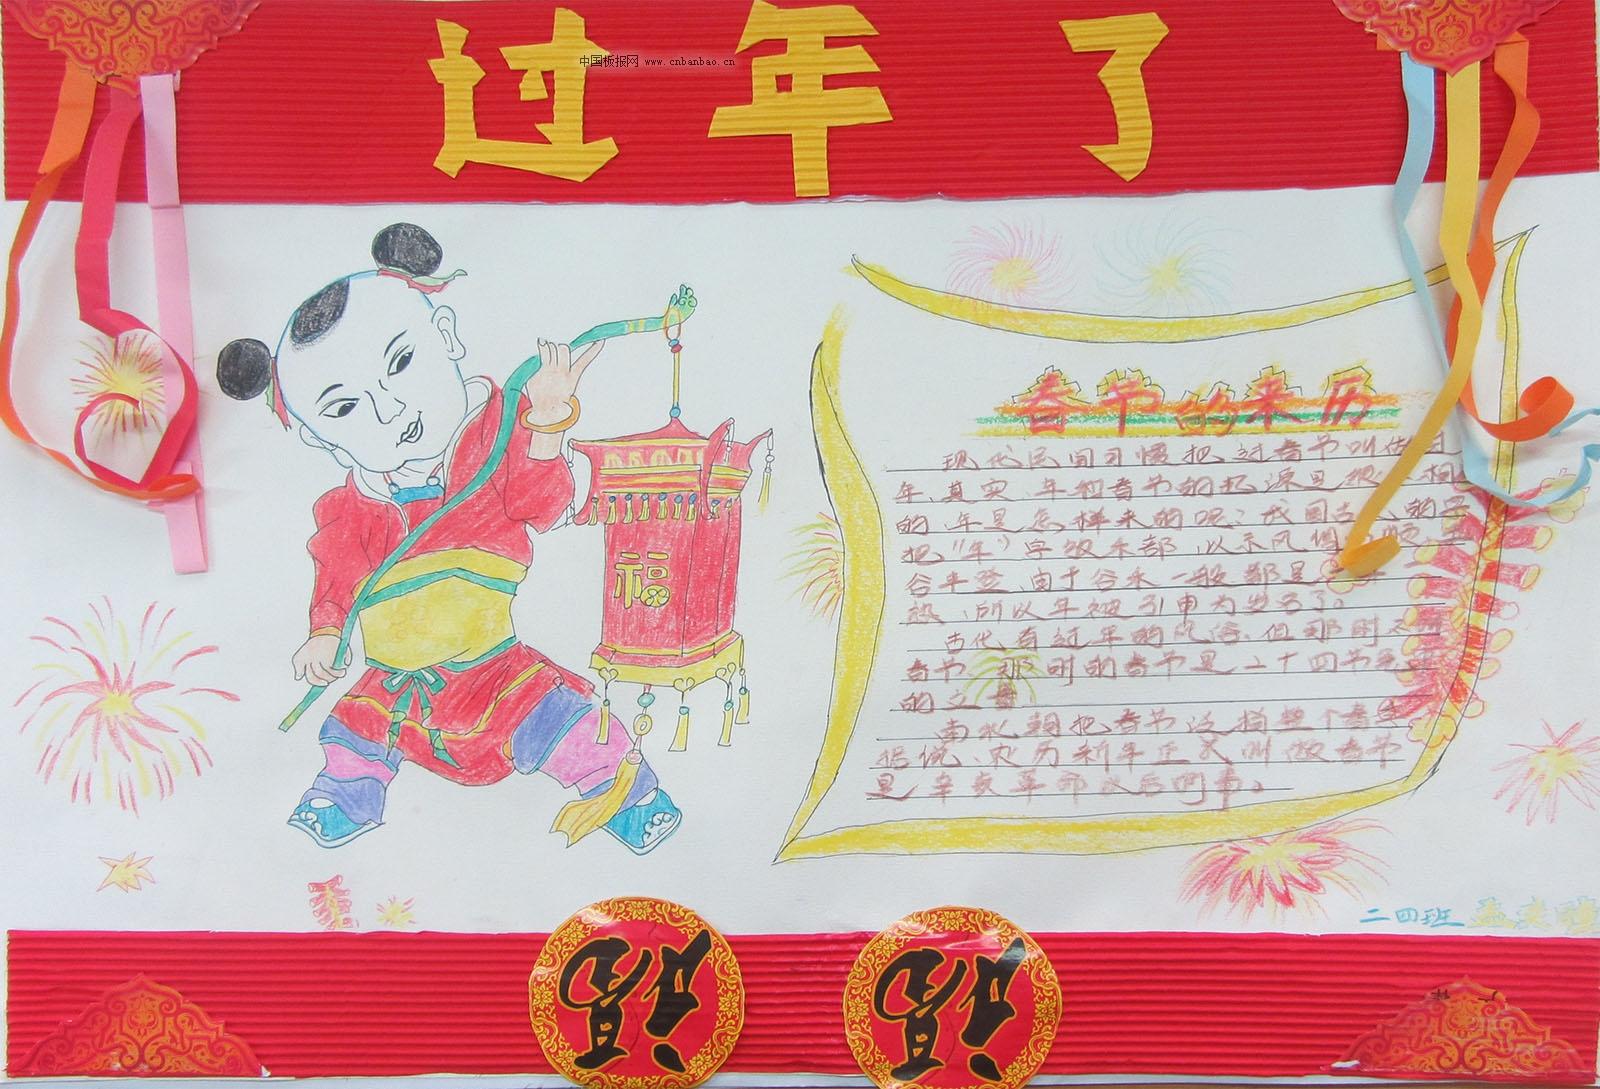 过年了
中国板报网 www.cnbanbao.cn
春节的来历
现代民间习惯把过春节叫做
年、其实、年和春节的起源是很 相
的、年是怎样来的呢？我国古 的
把"年"字 禾部、以示风调
谷丰登、由于谷禾一般都是
熟、所以年被引申为岁名了。
古代有过年的风俗、但那时
春节、那时的春节是二十四节
的立春
南北朝把春节泛指整个春
据说、农历新年正式叫做春节
是辛亥革命以后的事。
福
二四班
福
福